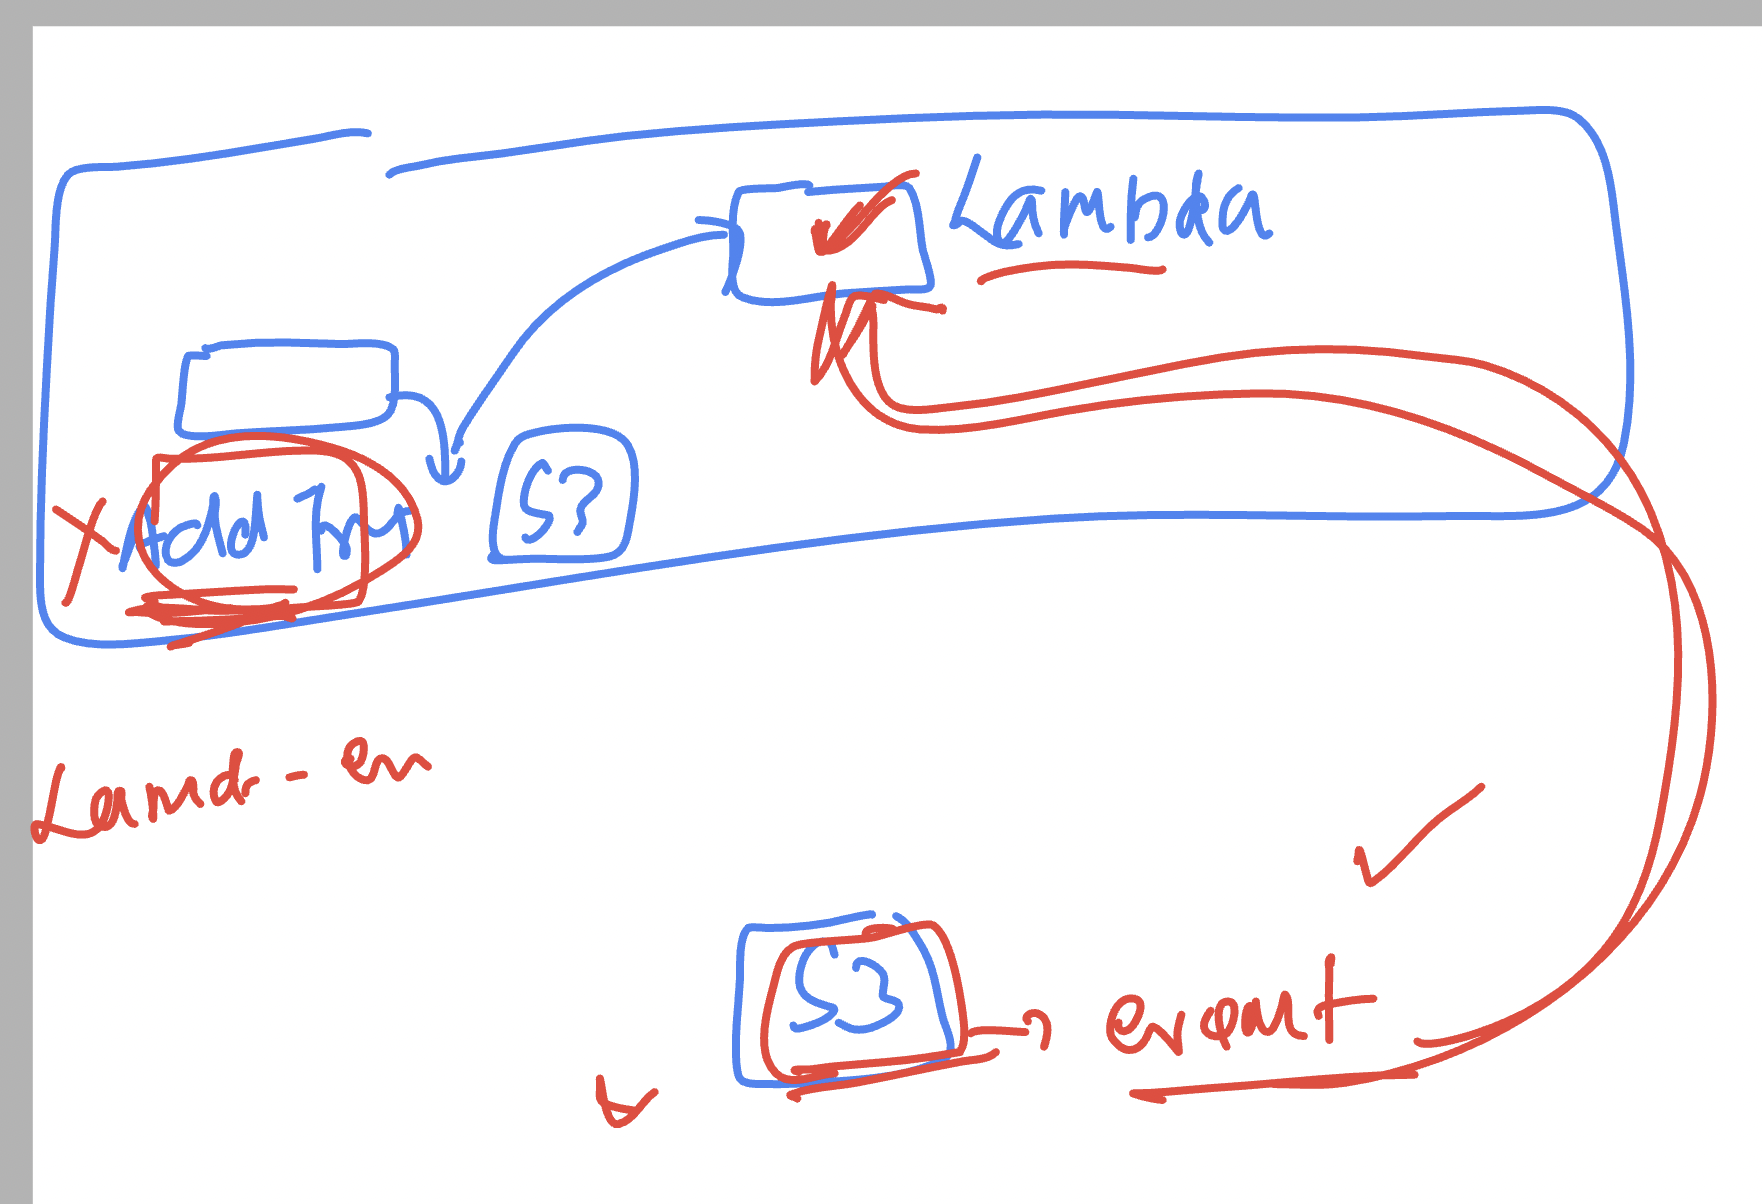 Lambda
Add Tri
S3
Lamd - en
S3
event